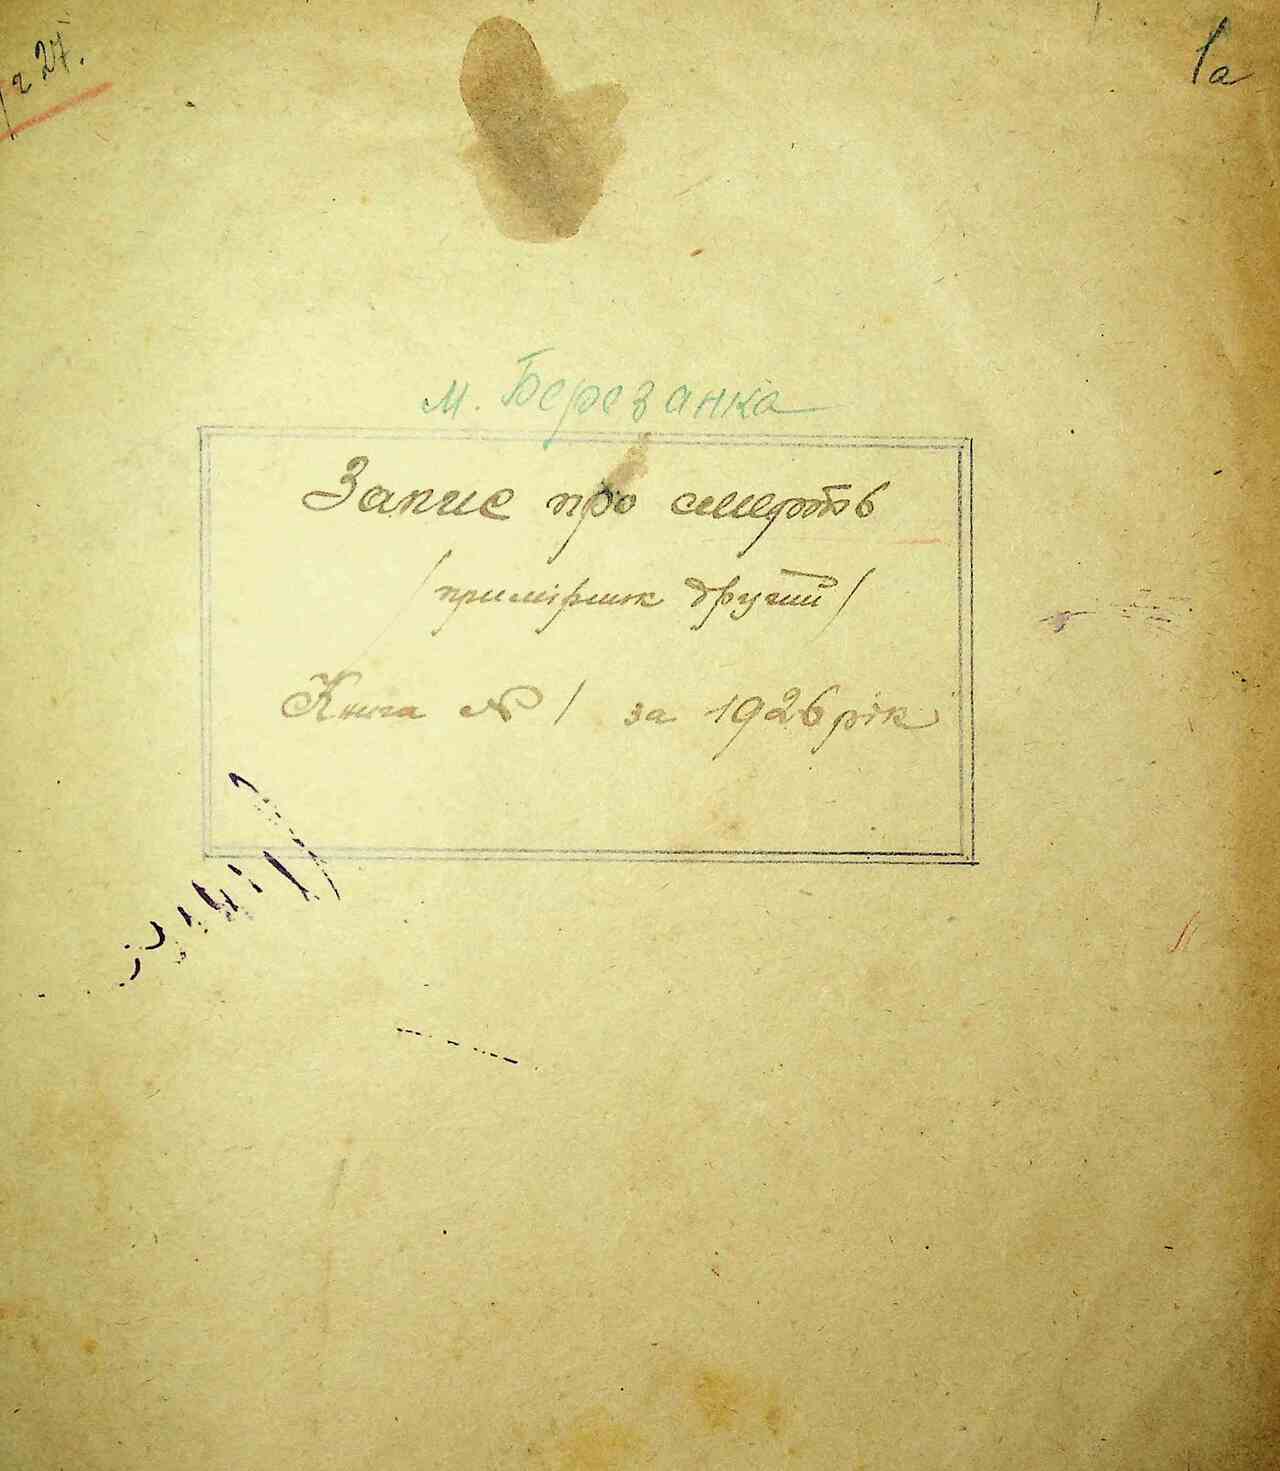 27.
1а
м. Березанка
Запис про смерть
/примірник другий/
Книга № 1 за 1926 рік